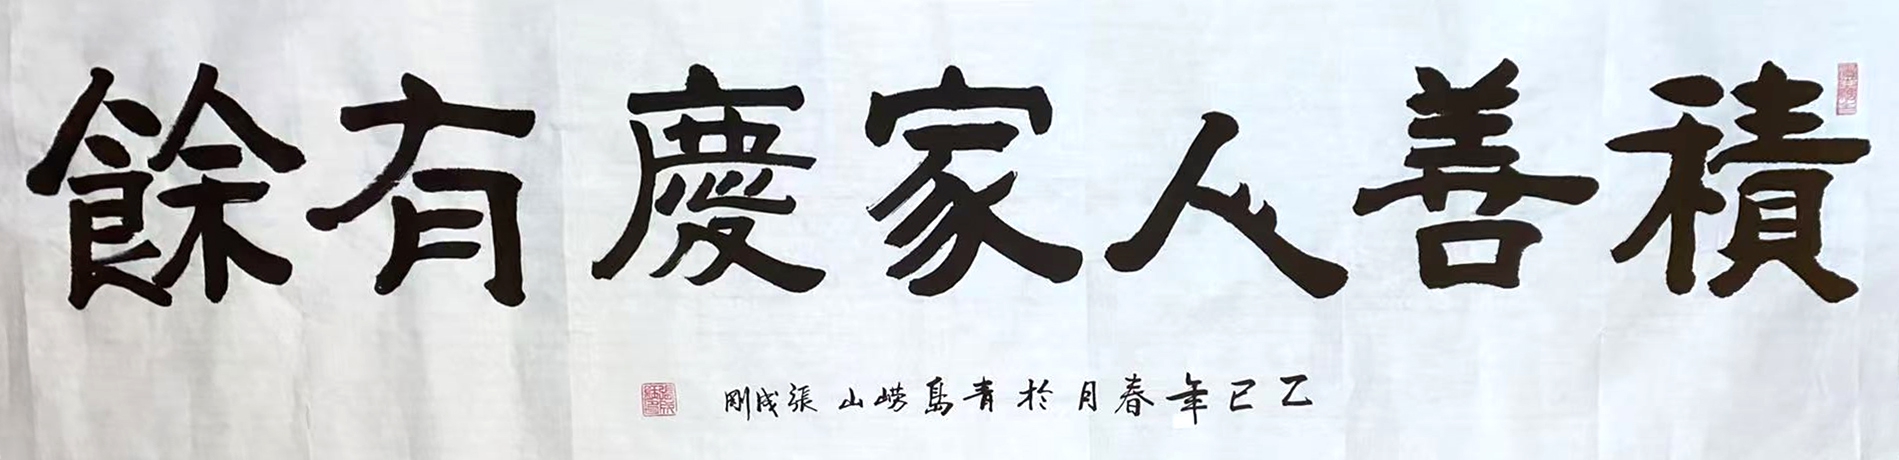 積善人家慶有餘
乙巳年春月於青島嶗山張成剛